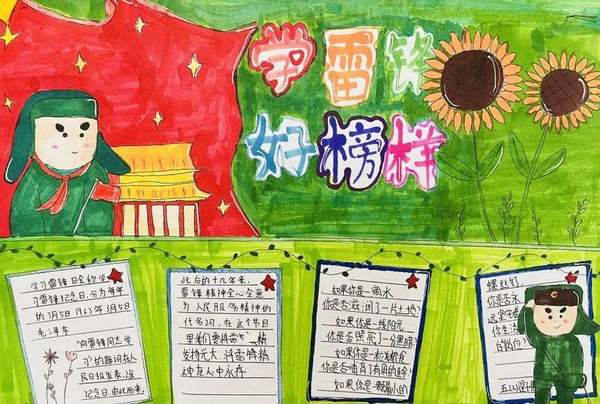 学雷锋
好榜样
学习雷锋日全称学
习雷锋纪念日,分为每年
的3月5日1963年3月5日
毛泽东
"向雷锋同志学
习"的题词在人
民日报发表,
纪念日由此而来
此后的十几年来,
雷锋精神全心全意
为人民服务精神的
代名词,在这个节日
里我们要将雷
扬光大,将雷锋精
神在人中永存
如果你是一滴水
你是否滋润了一片土地?
如果你是一线阳光
你是否照亮了一分黑暗?
如果你是一粒粮食
你是否哺育了有用的
如果你是最小的
螺丝钉
你是否永
远坚守着
你生活
的岗位?